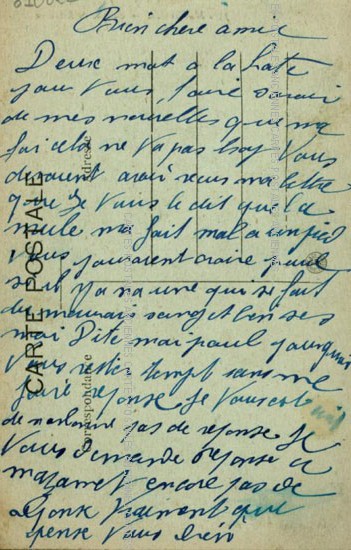 Bien chere amie
Deux mot a la hate
pour Vous faire savoir
de mes nouvelles que ma
foi cela ne va pas trop Vous
devount avoir recus ma lettre
que Je Vous le dit que la
mule ma fait mal a un pied
Vous pouvent croire paul
se il y a n une qui se fait
du mauvais sanget bien ses
moi Dite moi paul pourquoi
Vous restes tempt sans me
faire reponse Je Vous
de pas de reponse Je
Vous demande reponse a
encore pas de
reponse Vraiment que
pense Vous
CARTE POSTALE
Correspondance
Adresse